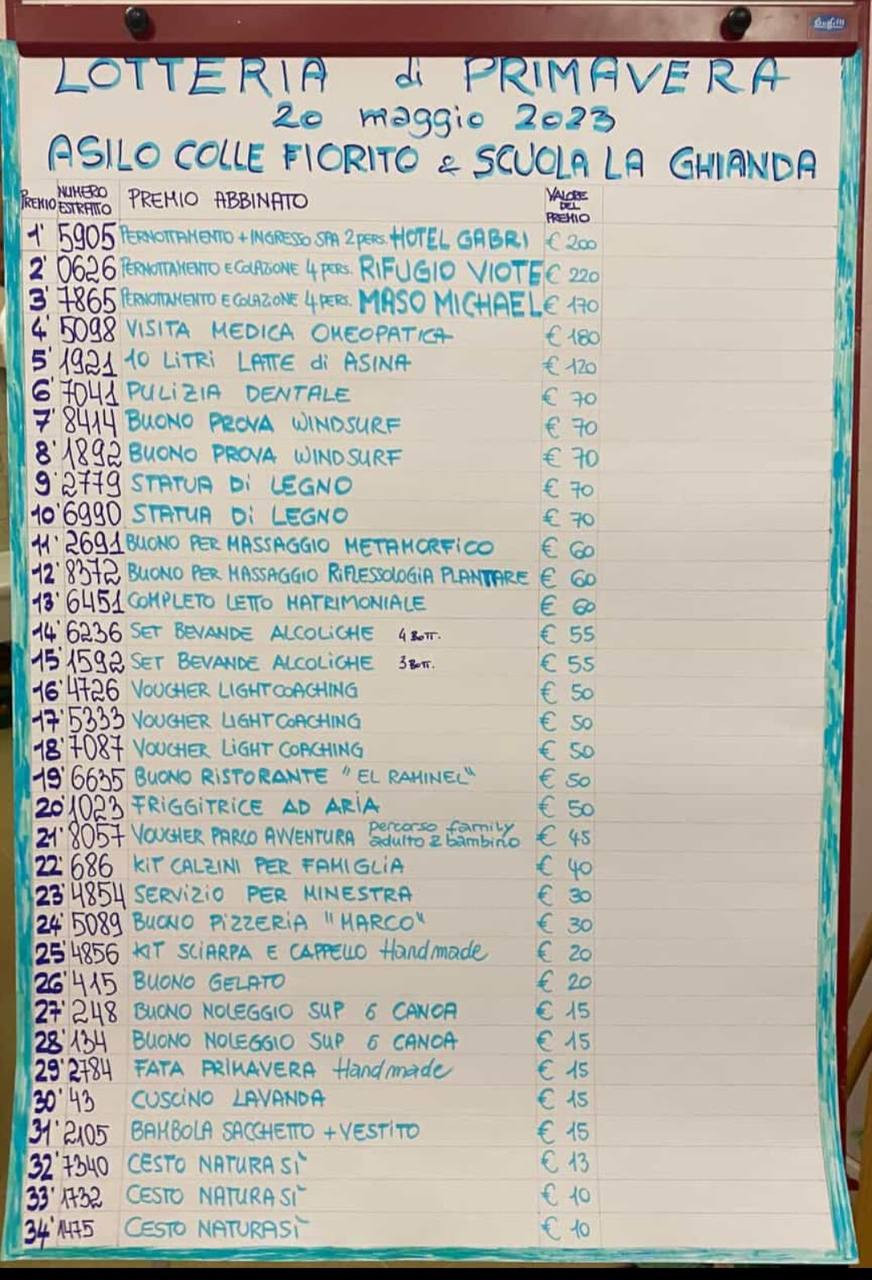 LOTTERIA di PRIMAVERA
20 maggio 2023
ASILO COLLE FIORITO & SCUOLA LA GHIANDA
PREMIO NUMERO ESTRATTO PREMIO ABBINATO VALORE DEL PREMIO
1° 5905 PERNOTTAMENTO + INGRESSO SPA 2 PERS. HOTEL GABRI € 200
2° 0626 PERNOTTAMENTO E COLAZIONE 4 PERS. RIFUGIO VIOTE € 220
3° 7865 PERNOTTAMENTO E COLAZIONE 4 PERS. MASO MICHAEL € 170
4° 5098 VISITA MEDICA OMEOPATICA € 180
5° 1921 10 LITRI LATTE di ASINA € 120
6° 7041 PULIZIA DENTALE € 70
7° 8414 BUONO PROVA WINDSURF € 70
8° 1892 BUONO PROVA WINDSURF € 70
9° 2779 STATUA Di LEGNO € 70
10° 6990 STATUA Di LEGNO € 70
11° 2691 BUONO PER MASSAGGIO METAMORFICO € 60
12° 8372 BUONO PER MASSAGGIO RIFLESSOLOGIA PLANTARE € 60
13° 6451 COMPLETO LETTO MATRIMONIALE € 60
14° 6236 SET BEVANDE ALCOLICHE 4 BOTT. € 55
15° 1592 SET BEVANDE ALCOLICHE 3 BOTT. € 55
16° 4726 VOUCHER LIGHT COACHING € 50
17° 5333 VOUCHER LIGHT COACHING € 50
18° 7087 VOUCHER LIGHT COACHING € 50
19° 6635 BUONO RISTORANTE "EL RAMINEL" € 50
20° 1023 FRIGGITRICE AD ARIA € 50
21° 8057 VOUCHER PARCO AVVENTURA percorso family adulto & bambino € 45
22° 686 KIT CALZINI PER FAMIGLIA € 40
23° 4854 SERVIZIO PER MINESTRA € 30
24° 5089 BUONO PIZZERIA "MARCO" € 30
25° 4856 KIT SCIARPA E CAPPELLO Handmade € 20
26° 415 BUONO GELATO € 20
27° 248 BUONO NOLEGGIO SUP 6 CANOA € 15
28° 134 BUONO NOLEGGIO SUP 6 CANOA € 15
29° 2784 FATA PRIMAVERA Handmade € 15
30° 43 CUSCINO LAVANDA € 15
31° 2105 BAMBOLA SACCHETTO + VESTITO € 15
32° 7340 CESTO NATURA SÌ € 13
33° 1732 CESTO NATURA SÌ € 10
34° 1475 CESTO NATURASÌ € 10